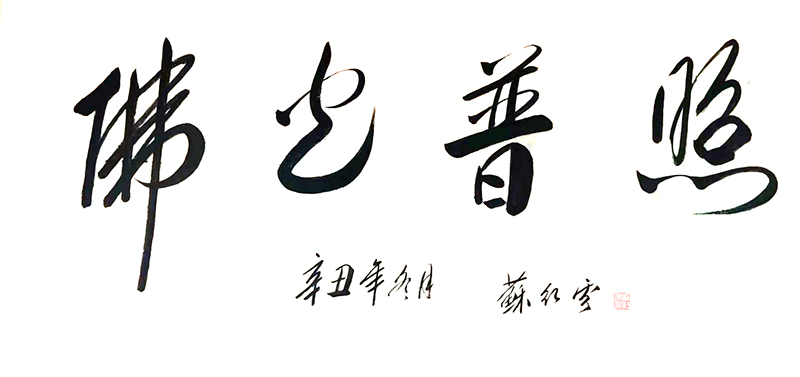 佛光普照
辛丑年冬月 蘇红雪